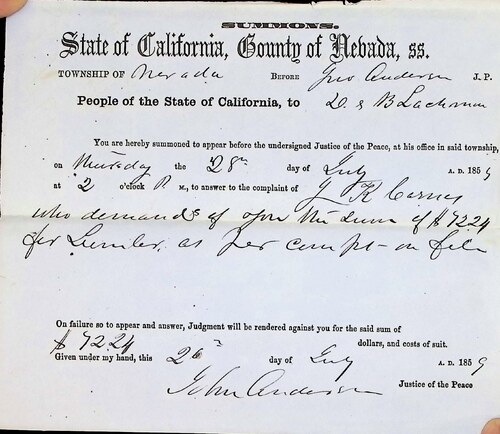 SUMMONS.
State of California, County of Nevada, ss.
TOWNSHIP OF Nevada BEFORE Jno Anderson J. P.
People of the State of California, to D. & B Lachman
You are hereby summoned to appear before the undersigned Justice of the Peace, at his office in said township,
on Thursday the 28th day of July A. D. 1859
at 2 o'clock P M., to answer to the complaint of R Carnes
who demands of you the Sum of $72.24
for Lumber as per compt on file
On failure so to appear and answer, Judgment will be rendered against you for the said sum of
$72.24 dollars, and costs of suit.
Given under my hand, this 26th day of July A. D. 1859
John Anderson Justice of the Peace